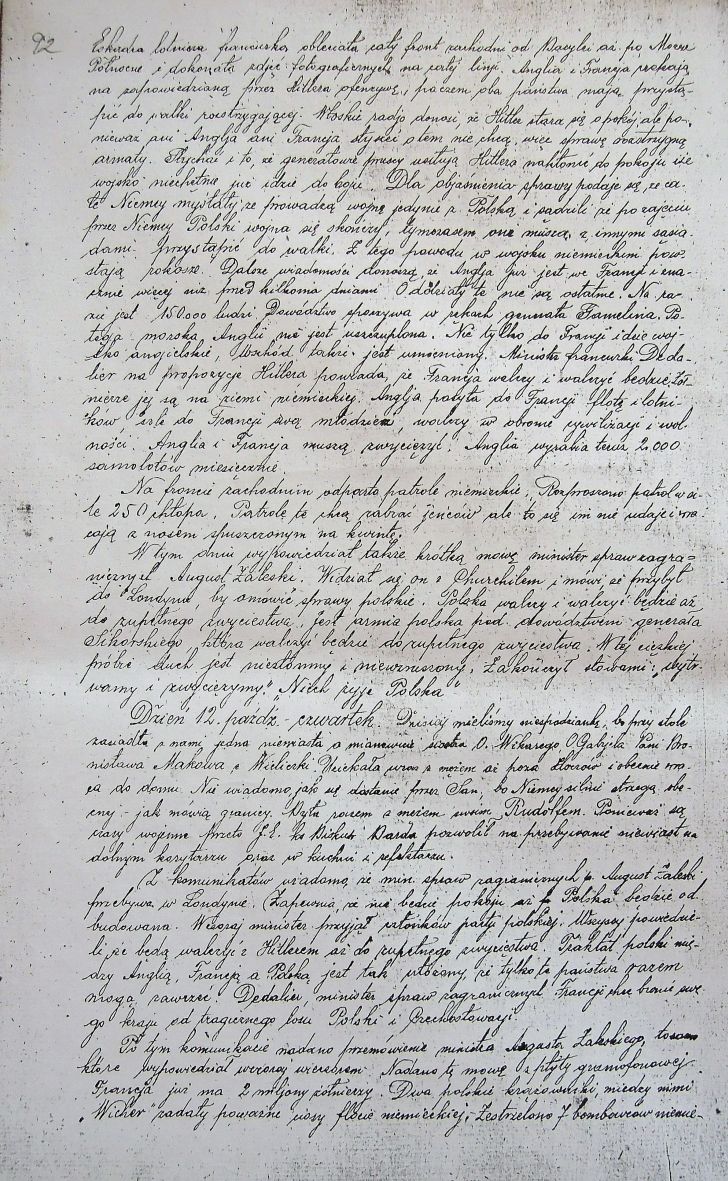 92
Eskadra lotnicza francuska obleciała cały front zachodni od Bazylei aż po Morze
Północne i dokonała zdjęć fotograficznych na całej linji. Anglia i Francja czekają
na zapowiedzianą przez Hitlera ofenzywę, poczem oba państwa mają przystą-
pić do walki rozstrzygającej. Włoskie radjo donosi, że Hitler stara się o pokój ale po-
nieważ ani Anglja ani Francja słyszeć o tem nie chcą, więc sprawę rozstrzygną
armaty. Słychać i to, że generałowie pruscy usiłują Hitlera nakłonić do pokoju iże
wojsko niechętnie już idzie do boju. Dla objaśnienia sprawy podaje się, że ca-
łe Niemcy myślały że prowadzą wojnę jedynie z Polską i sądzili że po zajęciu
przez Niemcy Polski wojna się skończy, tymczasem one muszą z innymi sąsia-
dami przystąpić do walki. Z tego powodu w wojsku niemieckim pow-
stają rokosze. Dalsze wiadomości donoszą, że Anglja już jest we Francji i zna-
cznie więcej niż przed kilkoma dniami. Oddziały te nie są ostatnie. Na ra-
zie jest 150.000 ludzi. Dowództwo spoczywa w rękach generała Gamelina. Po-
tęga morska Anglii nie jest uszczuplona. Nie tylko do Francji idzie woj-
sko angielskie, Wschód także jest umocniony. Minister francuski Deda-
lier na propozycje Hitlera powiada, że Francja walczy i walczyć będzie, żoł-
nierze jej są na ziemi niemieckiej. Anglja posyła do Francji flotę i lotni-
ków, śle do Francji swą młodzież, walczy w obronie cywilizacji i wol-
ności. Anglia i Francja muszą zwyciężyć. Anglia wyrabia teraz 2.000
samolotów miesięcznie.
Na froncie zachodnim odparto patrole niemieckie. Rozproszono patrol w si-
le 250 chłopa. Patrole te chcą zabrać jeńców ale to się im nie udaje i wra-
cają z nosem spuszczonym na kwintę.
W tym dniu wypowiedział także krótką mowę minister spraw zagra-
nicznych August Zaleski. Widział się on z Churchilem i mówi że przybył
do Londynu, by omówić sprawy polskie. Polska walczy i walczyć będzie aż
do zupełnego zwycięstwa. Jest armia polska pod dowództwem generała
Sikorskiego, która walczyć będzie do zupełnego zwycięstwa. W tej ciężkiej
próbie duch jest niezłomny i niewzruszony. Zakończył słowami: „wytr-
wamy i zwyciężymy." „Niech żyje Polska"
Dzień 12. paźdź. - czwartek. Dzisiaj mieliśmy niespodziankę, bo przy stole
zasiadła z nami jedna niewiasta a mianowicie siostra O. Wikarego, O. Gabryla Pani Bro-
nisława Makowa z Wieliczki. Uciekała wraz z mężem aż poza Złoczów i obecnie wra-
ca do domu. Nie wiadomo, jak się dostanie przez San, bo Niemcy silnie strzegą obe-
cnej - jak mówią granicy. Była razem z mężem swoim Rudolfem. Ponieważ są
czasy wojenne przeto J.E. ks Biskup Barda pozwolił na przebywanie niewiast na
dolnym korytarzu oraz w kuchni i refektarzu.
Z komunikatów wiadomo, że min. spraw zagranicznych p. August Zaleski
przebywa w Londynie. Zapewnia, że nie będzie pokoju aż Polska będzie od-
budowana. Wczoraj minister przyjął członków partji polskiej. Wszyscy powiedzie-
li że będą walczyć z Hitlerem aż do zupełnego zwycięstwa. Traktat polski mię-
dzy Anglią, Francją a Polską jest tak ułożony, że tylko te państwa razem
mogą zawrzeć. Dedalier, minister spraw zagranicznych Francji chce bronić swe-
go kraju od tragicznego losu Polski i Czechosłowacji.
Po tym komunikacie nadano przemówienie ministra Augusta Zaleskiego, to samo
które wypowiedział wczoraj wieczorem. Nadano tę mowę z płyty gramofonowej.
Francja już ma 2 miljony żołnierzy. Dwa polskie krążowniki, między nimi
„Wicher" zadały poważne ciosy flocie niemieckiej. Zestrzelono 7 bombowców niemie-